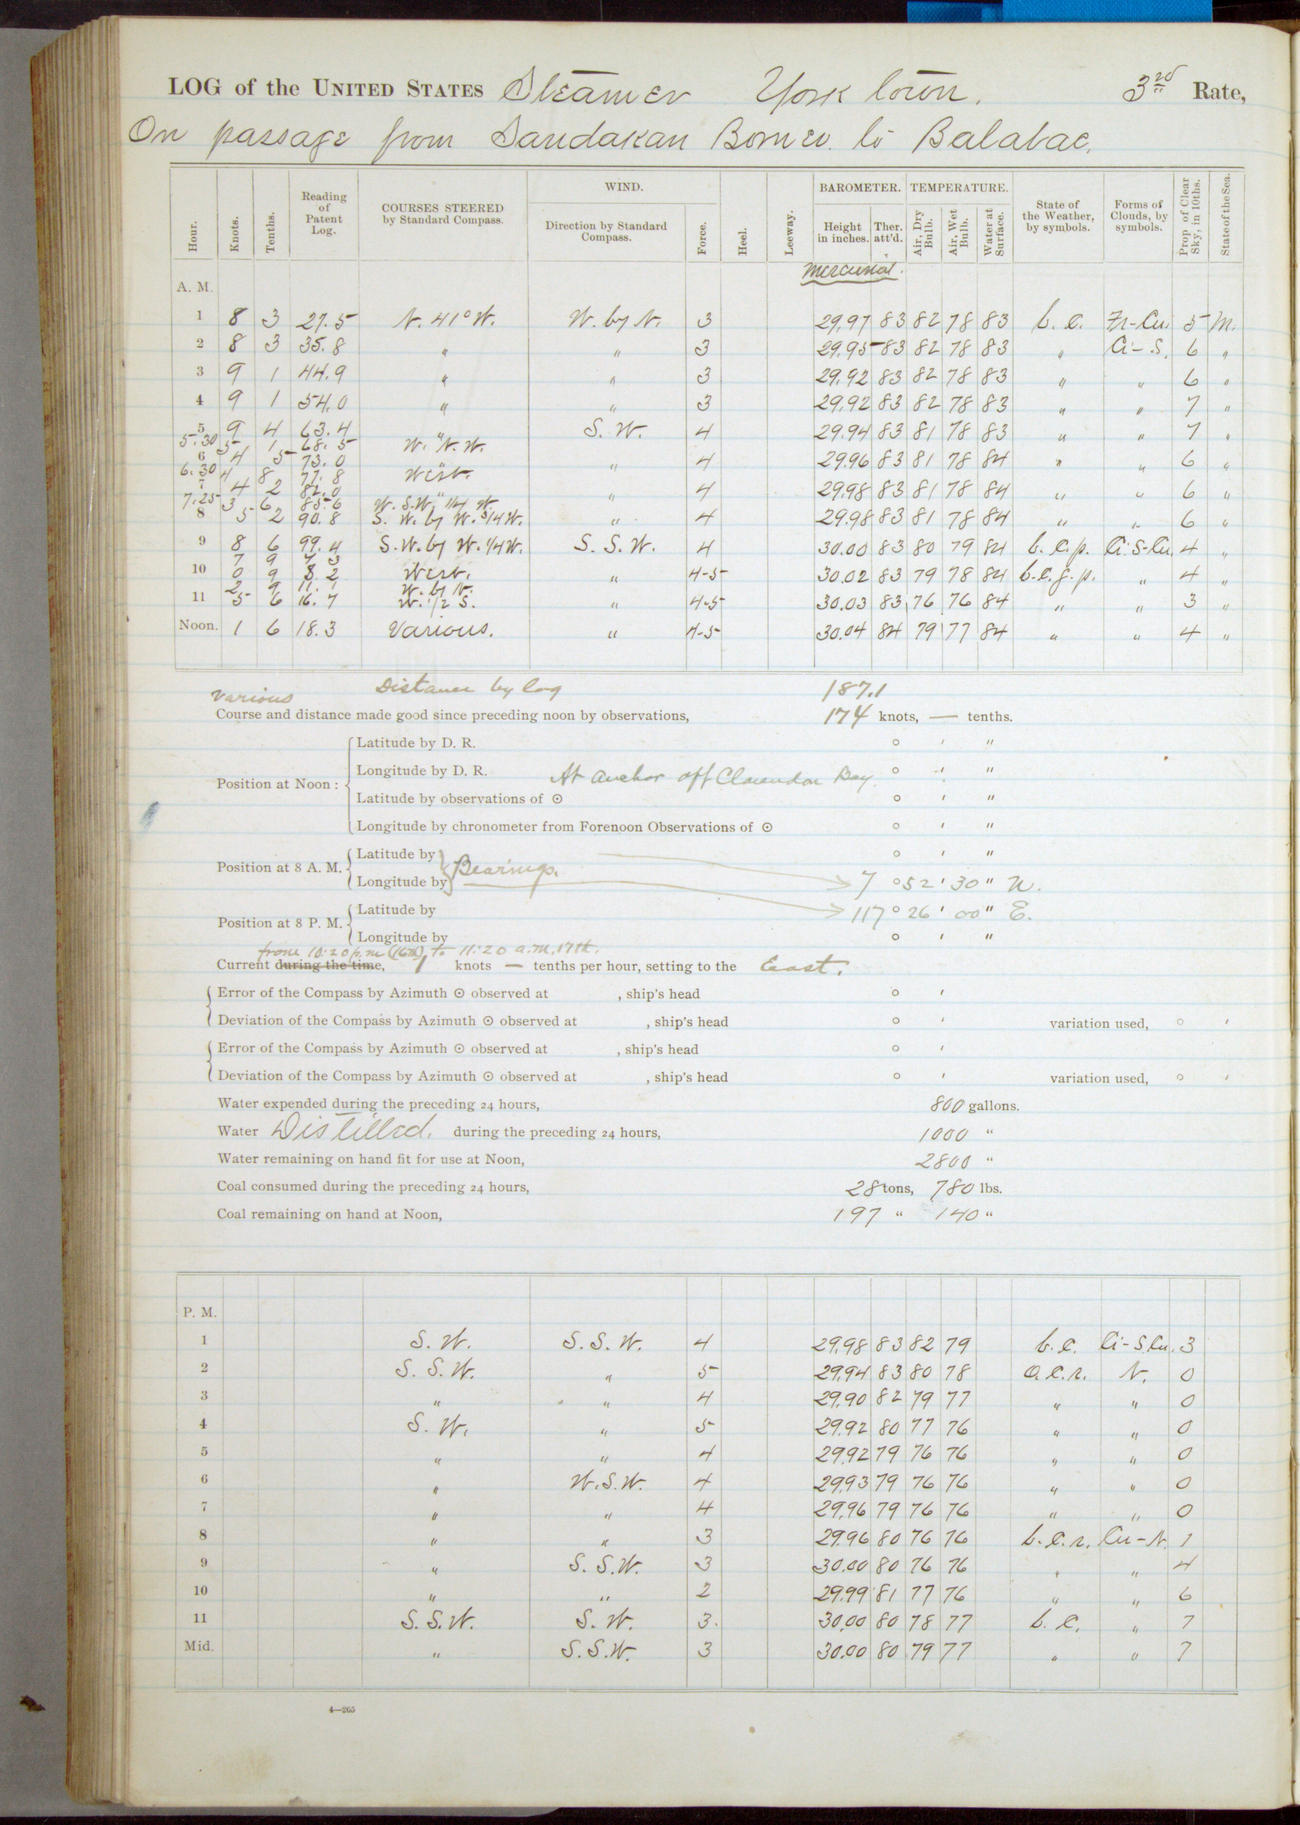 LOG of the UNITED STATES Steamer Yorktown. 3rd Rate,
On passage from Sandakan Borneo. to Balabac.
Hour. Knots. Tenths. Reading of Patent Log. COURSES STEERED by Standard Compass. WIND. Direction by Standard Compass. Force. Heel. Leeway. BAROMETER. Height in inches. Ther. att'd. TEMPERATURE. Air, Dry Bulb. Air, Wet Bulb. Water at Surface. State of the Weather, by symbols. Forms of Clouds, by symbols. Prop of Clear Sky, in 10ths. State of the Sea.
Mercurial.
A. M.
1 8 3 27.5 N. 41° W. W. by N. 3 29.97 83 82 78 83 b. c. Fr-Cu. 5 M.
2 8 3 35.8 " " 3 29.95 83 82 78 83 " Ci-S. 6 "
3 9 1 44.9 " " 3 29.92 83 82 78 83 " " 6 "
4 9 1 54.0 " " 3 29.92 83 82 78 83 " " 7 "
5 9 4 63.4 " S. W. 4 29.94 83 81 78 83 " " 7 "
5.30 5 1 68.5 W. N. W.
6 4 5 73.0 " " 4 29.96 83 81 78 84 " " 6 "
6.30 4 8 77.8 West.
7 4 2 82.0 " " 4 29.98 83 81 78 84 " " 6 "
7.25 3 6 85.6 W. S. W. 1/4 W.
8 5 2 90.8 S. W. by W. 3/4 W. " 4 29.98 83 81 78 84 " " 6 "
9 8 6 99.4 S. W. by W. 1/4 W. S. S. W. 4 30.00 83 80 79 84 b. c. p. Ci-S-Cu. 4 "
7 9 7.3
10 0 9 8.2 West. " 4-5 30.02 83 79 78 84 b. c. g. p. " 4 "
2 9 11.1 W. by N.
11 5 6 16.7 W. 1/2 S. " 4-5 30.03 83 76 76 84 " " 3 "
Noon. 1 6 18.3 Various. " 4-5 30.04 84 79 77 84 " " 4 "
Various Distance by log 187.1
Course and distance made good since preceding noon by observations, 174 knots, — tenths.
Position at Noon: Latitude by D. R. ° ' "
Longitude by D. R. At anchor off Clarendon Bay. ° ' "
Latitude by observations of ☉ ° ' "
Longitude by chronometer from Forenoon Observations of ☉ ° ' "
Position at 8 A. M. Latitude by ° ' "
Longitude by Bearings. 7 ° 52 ' 30 " N.
Position at 8 P. M. Latitude by 117 ° 26 ' 00 " E.
Longitude by ° ' "
from 10:20 p.m (16th) to 11:20 a.m. 17th.
Current during the time, 1 knots — tenths per hour, setting to the East.
Error of the Compass by Azimuth ☉ observed at , ship's head ° '
Deviation of the Compass by Azimuth ☉ observed at , ship's head ° ' variation used, ° '
Error of the Compass by Azimuth ☉ observed at , ship's head ° '
Deviation of the Compass by Azimuth ☉ observed at , ship's head ° ' variation used, ° '
Water expended during the preceding 24 hours, 800 gallons.
Water Distilled. during the preceding 24 hours, 1000 "
Water remaining on hand fit for use at Noon, 2800 "
Coal consumed during the preceding 24 hours, 28 tons, 780 lbs.
Coal remaining on hand at Noon, 197 " 140 "
P. M.
1 S. W. S. S. W. 4 29.98 83 82 79 b. c. Ci-S.Cu. 3
2 S. S. W. " 5 29.94 83 80 78 o. c. r. N. 0
3 " " 4 29.90 82 79 77 " " 0
4 S. W. " 5 29.92 80 77 76 " " 0
5 " " 4 29.92 79 76 76 " " 0
6 " W. S. W. 4 29.93 79 76 76 " " 0
7 " " 4 29.96 79 76 76 " " 0
8 " " 3 29.96 80 76 76 b. c. r. Cu-N. 1
9 " S. S. W. 3 30.00 80 76 76 " " 4
10 " " 2 29.99 81 77 76 " " 6
11 S. S. W. S. W. 3. 30.00 80 78 77 b. c. " 7
Mid. " S. S. W. 3 30.00 80 79 77 " " 7
4—265